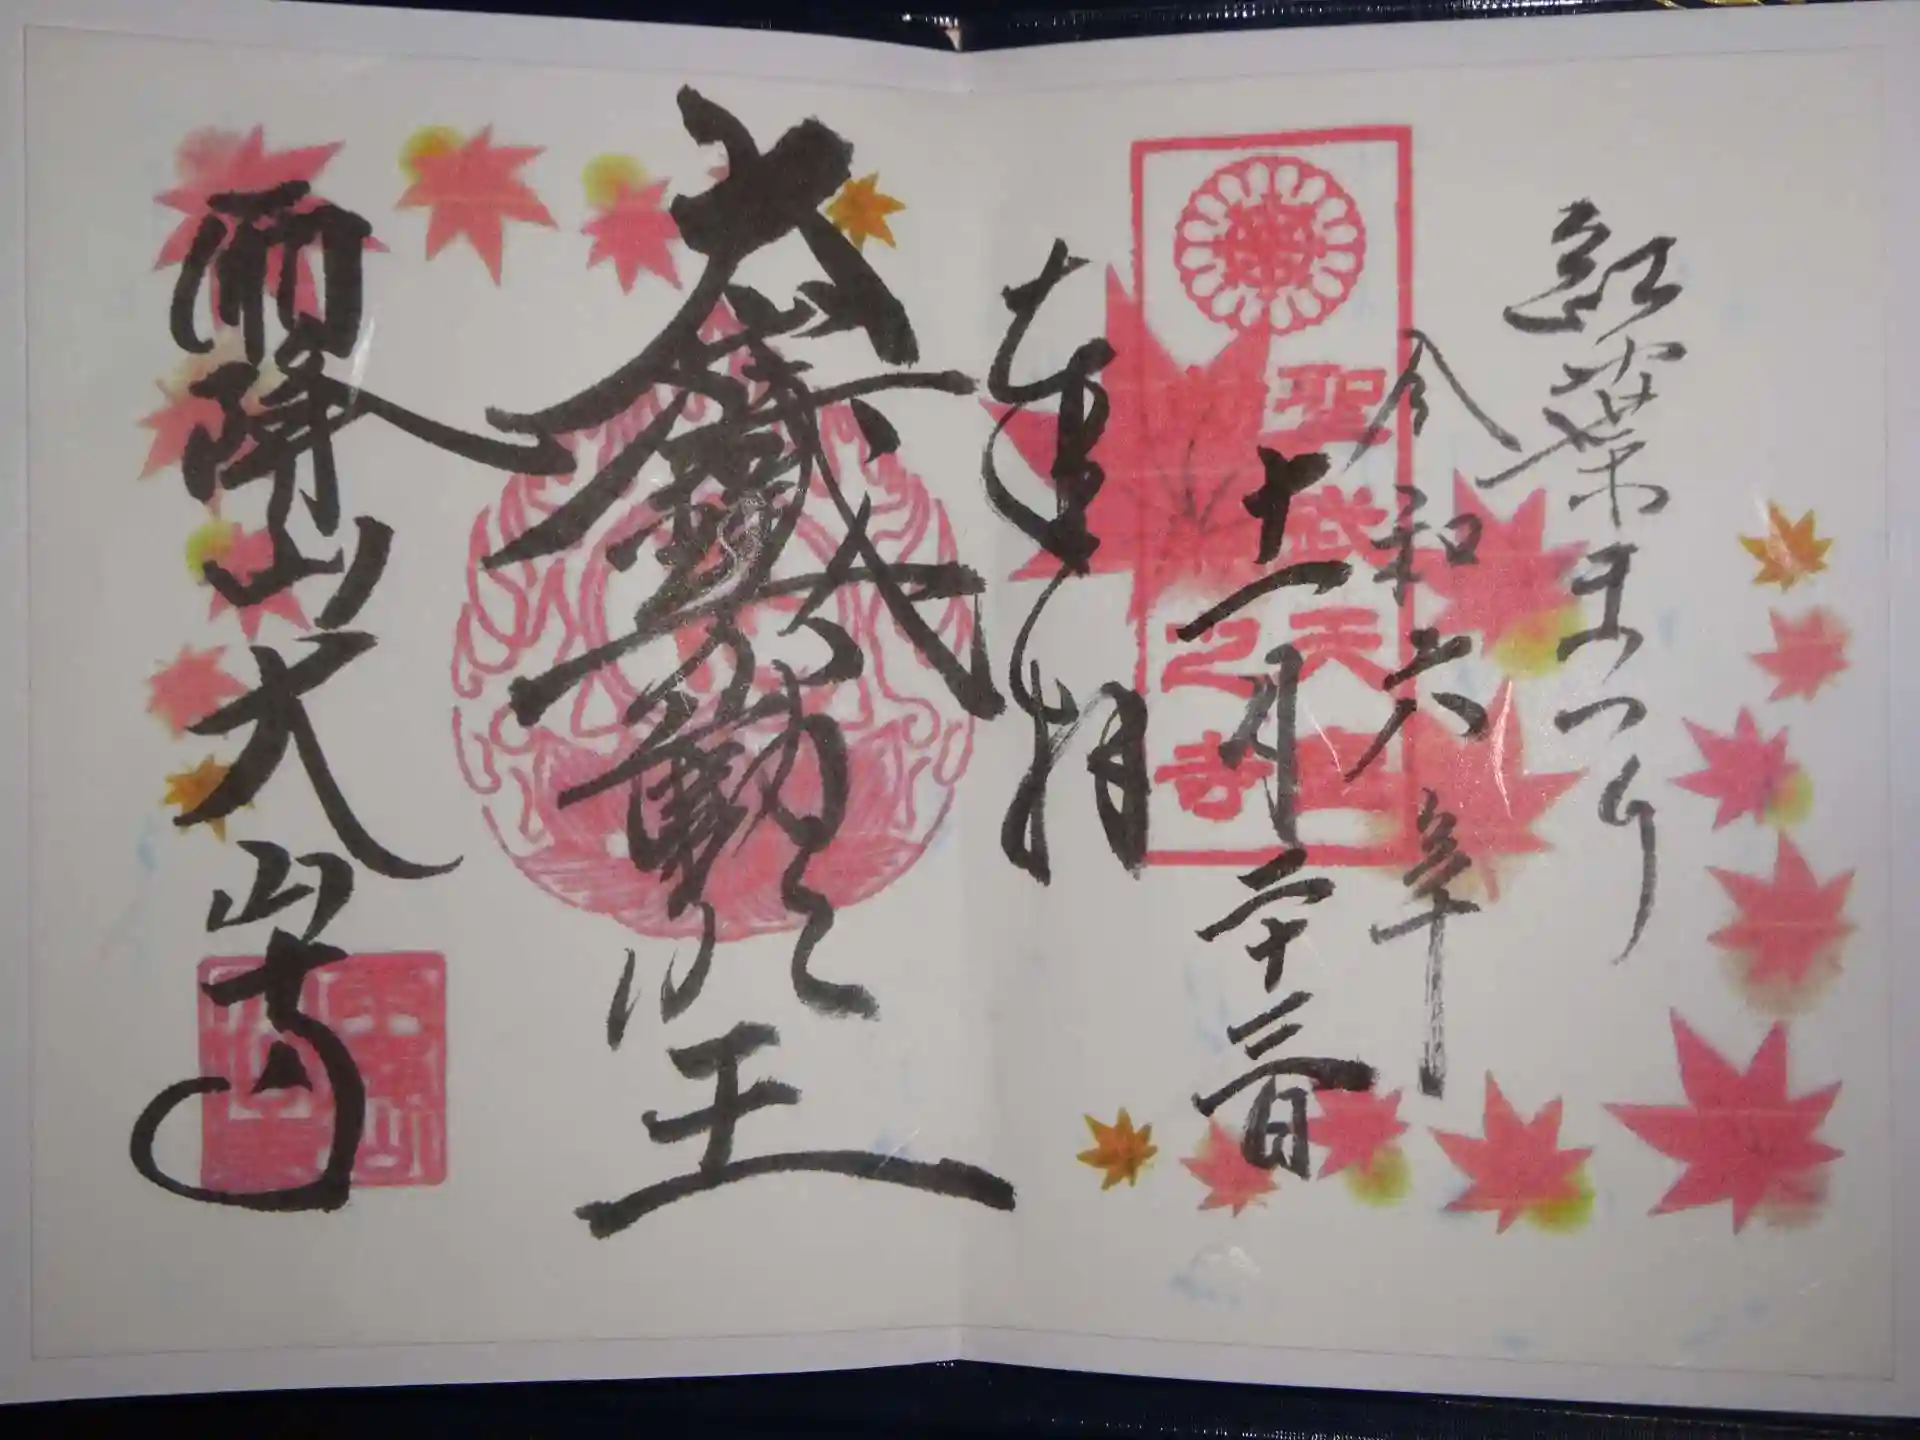 紅葉まつり
令和六年
十一月二十三日
奉拝
聖武天皇
勅願之寺
大鐵不動明王
雨降山大山寺